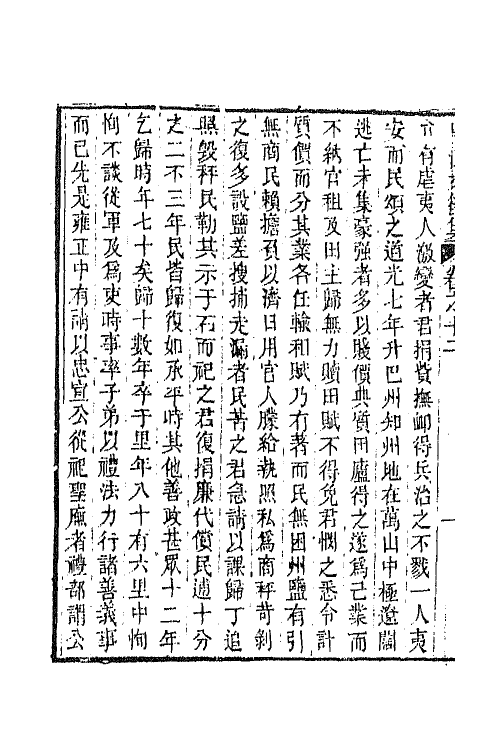 有虐夷人激變者君捐貲撫卹得兵治之不戮一人夷
安而民頌之道光七年升巴州知州地在萬山中極遼闊
逃亡未集豪强者多以賤價典質田廬得之遂爲己業而
不納官租及田主歸無力贖田賦不得免君憫之悉令計
質價而分其業各任輸和賦乃有著而民無困州鹽有引
無商民賴擔負以濟日用官人牒給執照私爲商秤苛剝
之復多設鹽差搜捕走漏者民苦之君急請以課歸丁追
照毀秤民勒其示于石而祀之君復捐廉代償民逋十分
之二不三年民皆歸復如承平時其他善政甚眾十二年
乞歸時年七十矣歸十數年卒于里年八十有六里中恂
恂不談從軍及爲吏時事率子弟以禮法力行諸善義事
而已先是雍正中有請以忠宣公從祀聖廡者禮部謂公